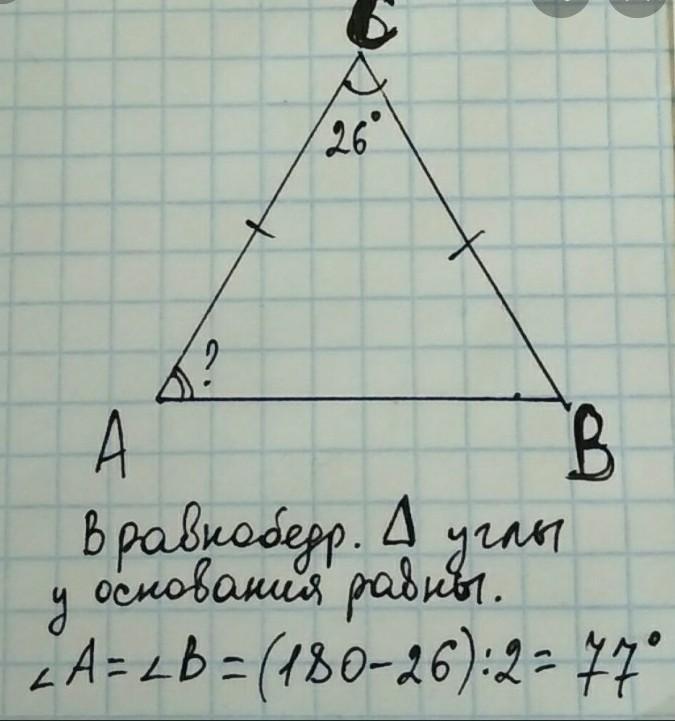 C
26°
?
A
B
В равнобедр. Δ углы
у основания равны.
∠A = ∠B = (180-26):2 = 77°